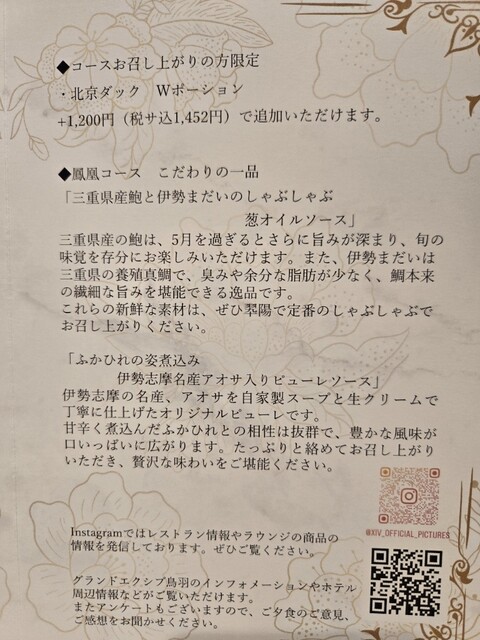 ◆コースお召し上がりの方限定
・北京ダック　Wポーション
+1,200円（税サ込1,452円）で追加いただけます。
◆鳳凰コース　こだわりの一品
「三重県産鮑と伊勢まだいのしゃぶしゃぶ
葱オイルソース」
三重県産の鮑は、5月を過ぎるとさらに旨みが深まり、旬の
味覚を存分にお楽しみいただけます。また、伊勢まだいは
三重県の養殖真鯛で、臭みや余分な脂肪が少なく、鯛本来
の繊細な旨みを堪能できる逸品です。
これらの新鮮な素材は、ぜひ翠陽で定番のしゃぶしゃぶで
お召し上がりください。
「ふかひれの姿煮込み
伊勢志摩名産アオサ入りピューレソース」
伊勢志摩の名産、アオサを自家製スープと生クリームで
丁寧に仕上げたオリジナルピューレです。
甘辛く煮込んだふかひれとの相性は抜群で、豊かな風味が
口いっぱいに広がります。たっぷりと絡めてお召し上がり
いただき、贅沢な味わいをご堪能ください。
@XIV_OFFICIAL_PICTURES
Instagramではレストラン情報やラウンジの商品の
情報を発信しております。ぜひご覧ください。
グランドエクシブ鳥羽のインフォメーションやホテル
周辺情報などがご覧いただけます。
またアンケートもございますので、ご夕食のご意見、
ご感想をお聞かせください。